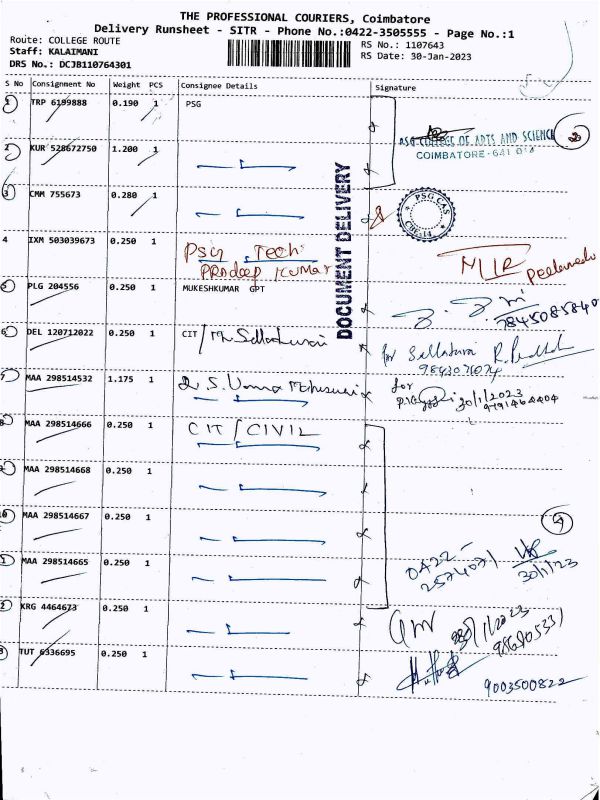 THE PROFESSIONAL COURIERS, Coimbatore
Delivery Runsheet - SITR - Phone No.:0422-3505555 - Page No.:1
Route: COLLEGE ROUTE
Staff: KALAIMANI
DRS No.: DCJB110764301
RS No.: 1107643
RS Date: 30-Jan-2023
S No Consignment No Weight PCS Consignee Details Signature
1 TRP 6199888 0.190 1 PSG
PSG COLLEGE OF ARTS AND SCIENCE
COIMBATORE - 641 014
2 KUR 528672750 1.200 1
3 CMM 755673 0.280 1
PSG CAS
CBE-14
DOCUMENT DELIVERY
4 IXM 503039673 0.250 1 PSG Tech
Pradeep Kumar
5 PLG 204556 0.250 1 MUKESHKUMAR GPT
7845085840
6 DEL 120712022 0.250 1 CIT/
for
7 MAA 298514532 1.175 1
for
30/1/2023
9791464404
8 MAA 298514666 0.250 1 CIT/CIVIL
9 MAA 298514668 0.250 1
10 MAA 298514667 0.250 1
0422-
2574071
30/1/23
1 MAA 298514665 0.250 1
2 KRG 4464673 0.250 1
3 TUT 6336695 0.250 1
9003500822